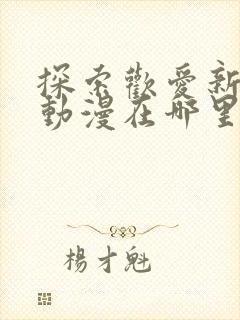 探索歡愛新
動漫在哪里
楊才魁